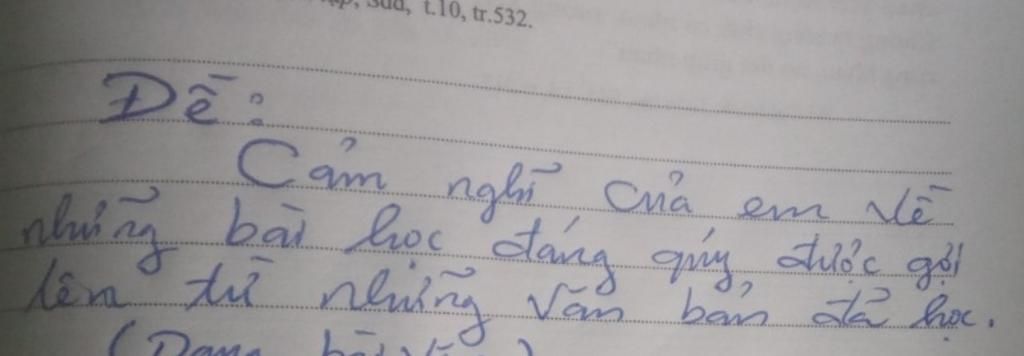 t.10, tr.532.
Đề:
Cảm nghĩ của em về
những bài học đáng quý được gợi
lên từ những văn bản đã học.
(Dạng bài